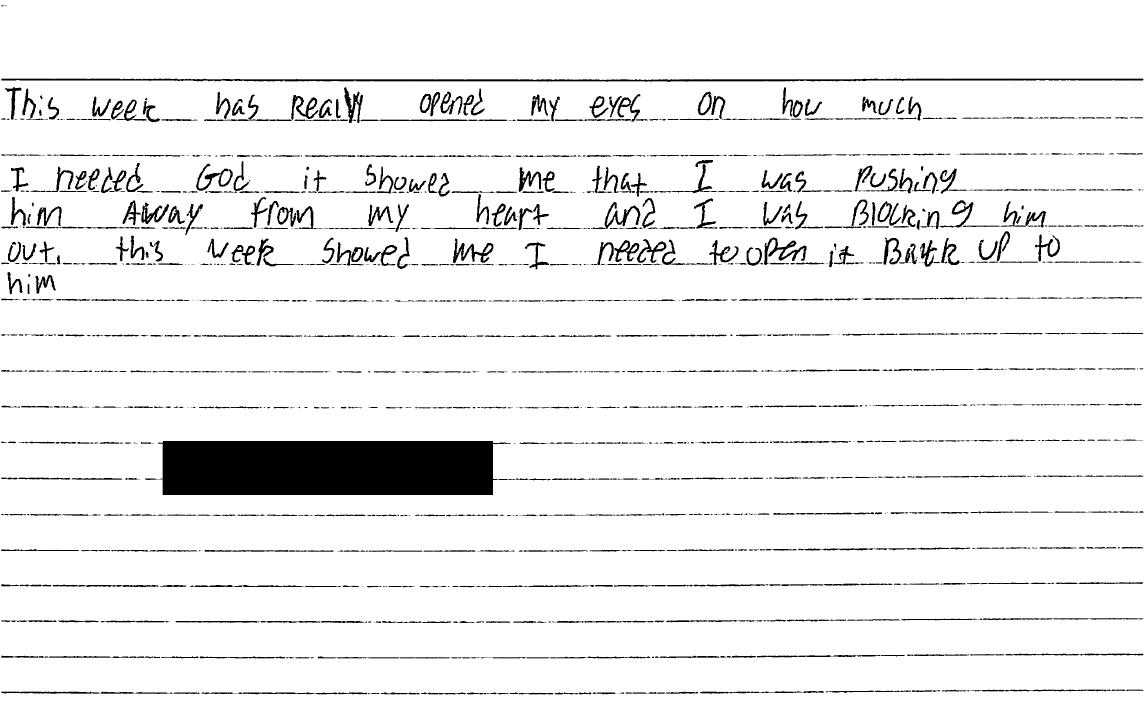 This week has Really opened my eyes on how much
I needed God it showed me that I was Pushing
him Away from my heart and I was Blocking him
out. this week showed me I needed to open it Back up to
him